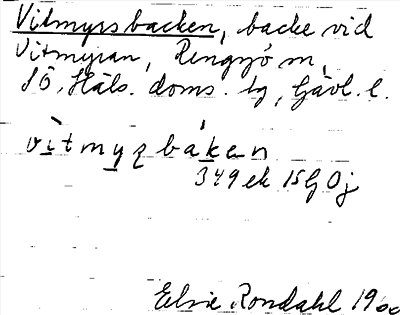 Vitmyrsbacken, backe vid
Vitmyran, Rengsjö sn,
SÖ. Häls. doms. tg, Gävl. l.
vìtmyʂbáken
349 ek 15G 0j
Elsie Rondahl 19